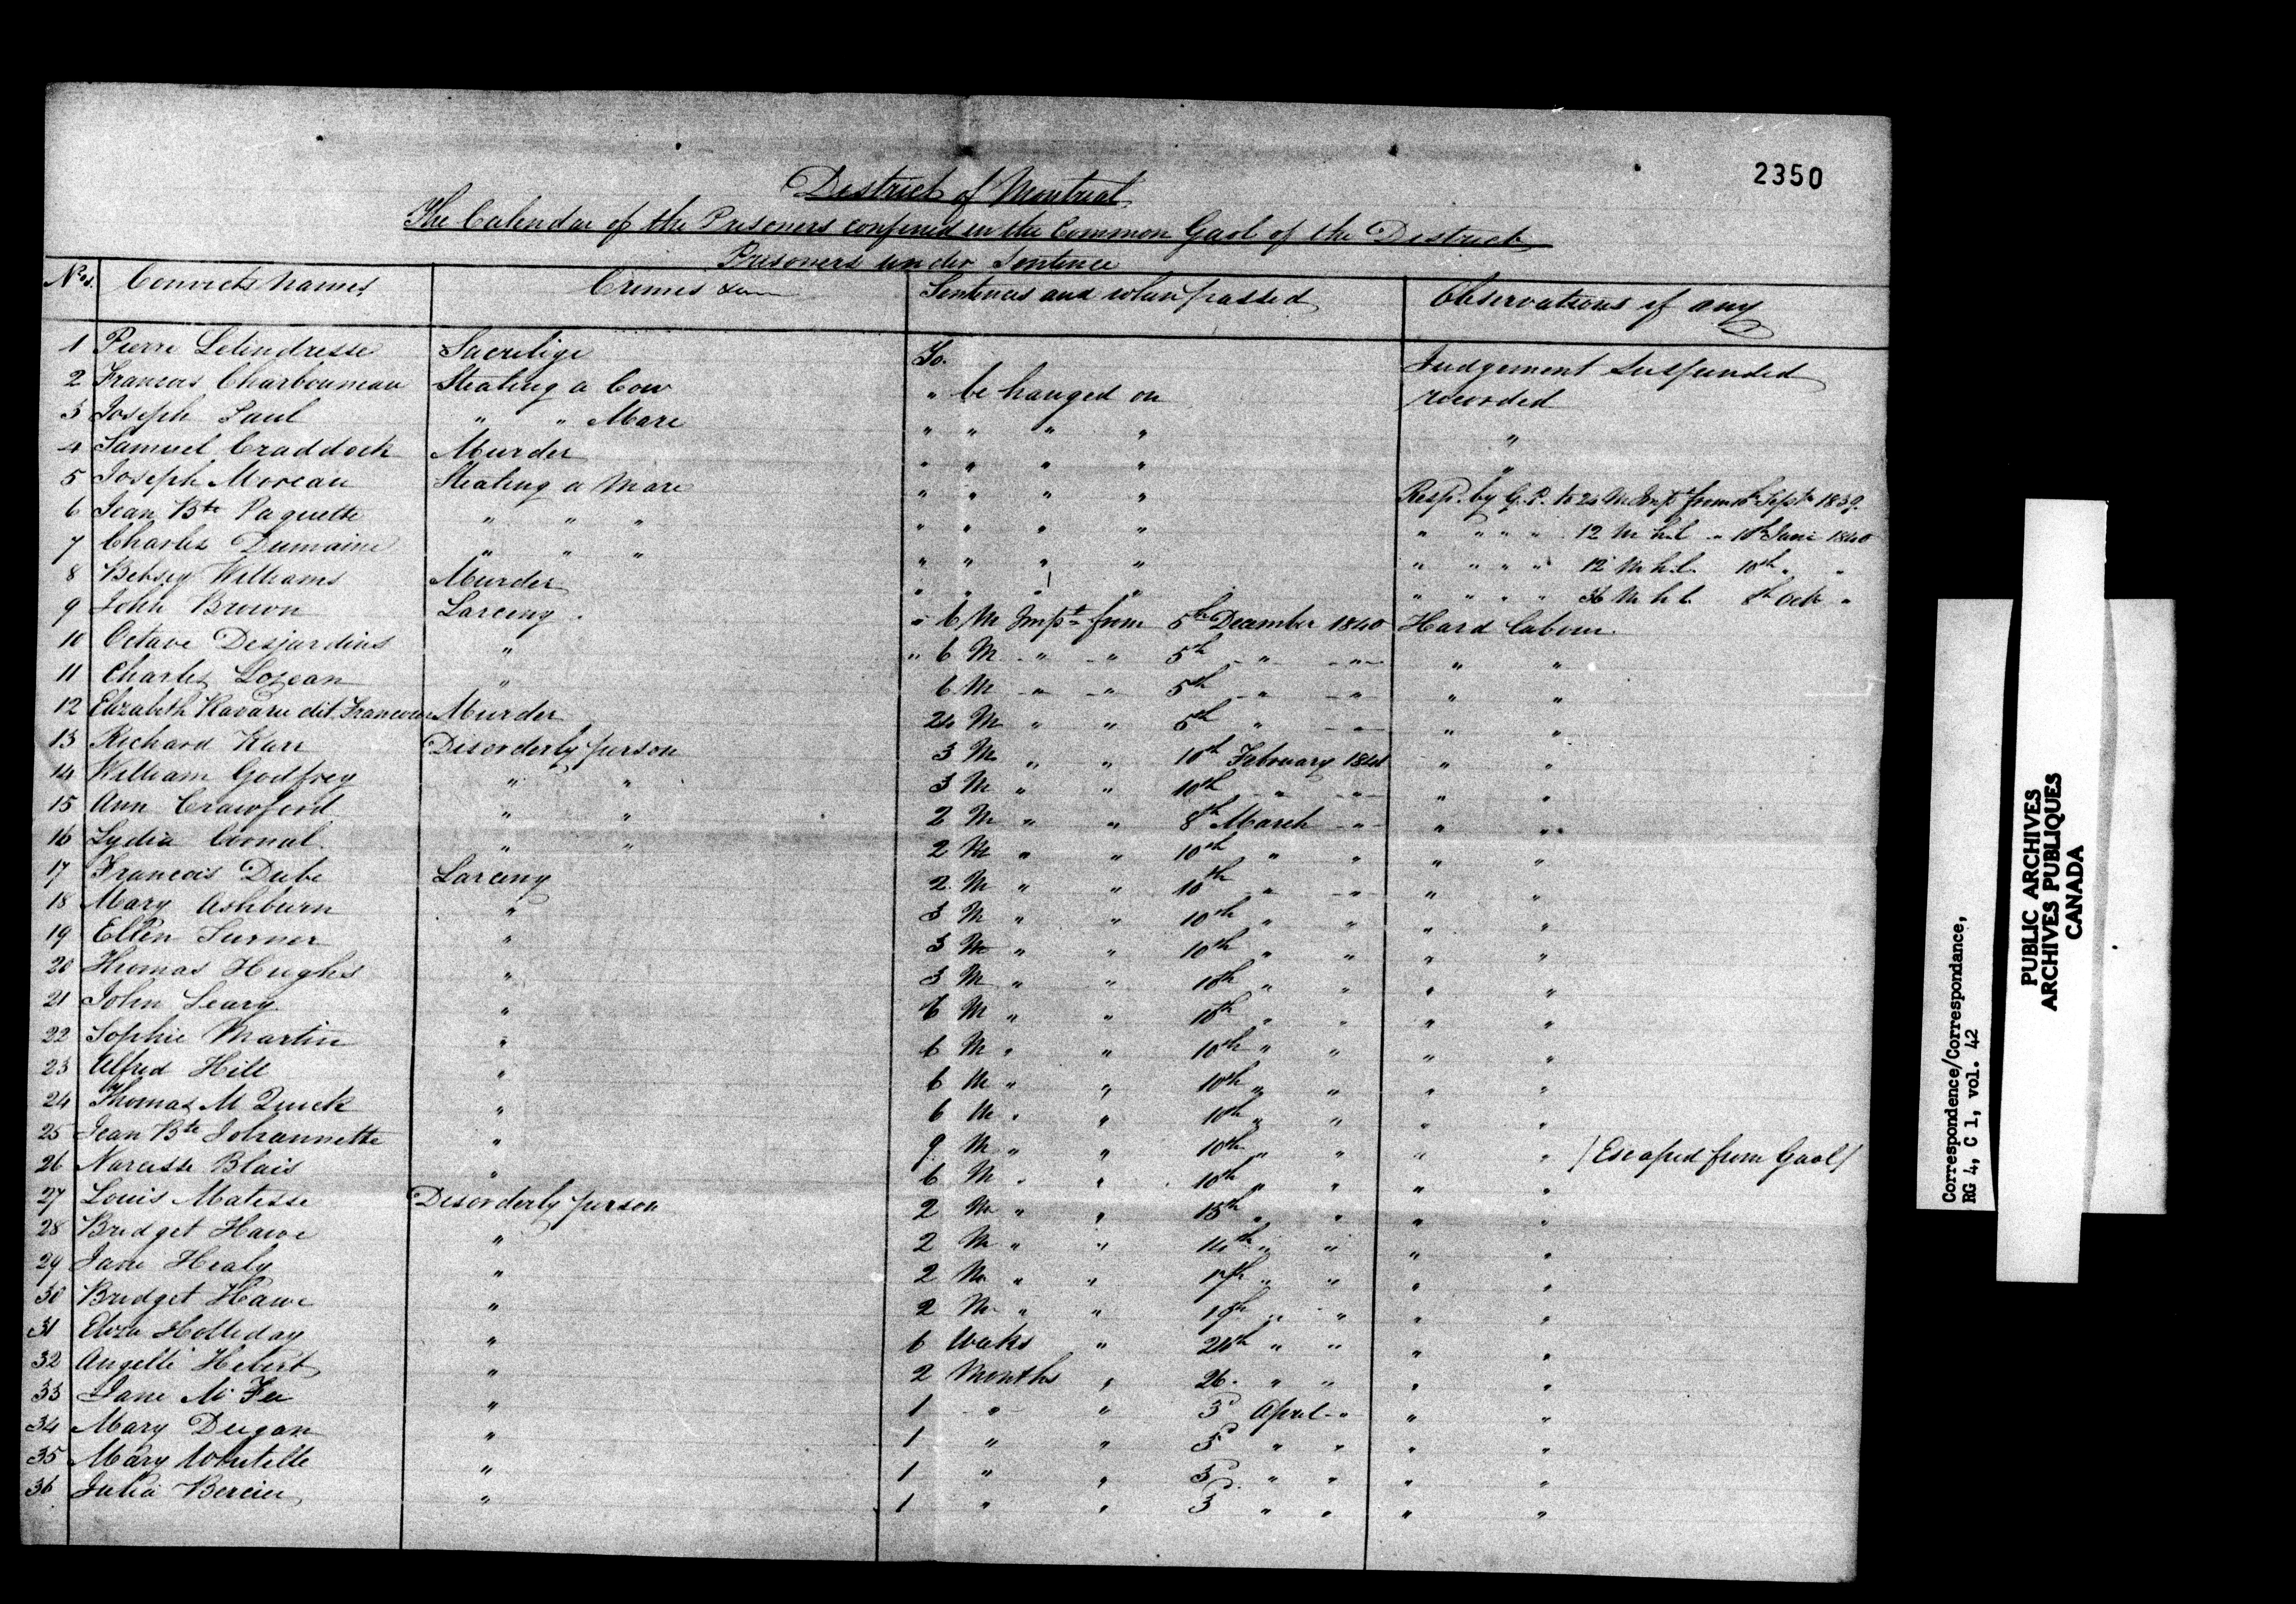 2350
District of Montreal
The Calendar of the Prisoners confined in the Common Gaol of the District
Prisoners under Sentence
Nos. Convicts names Crimes &c Sentences and when passed Observations if any
1 Pierre Letendresse Sacrilige To. Judgement Suspended
2 Francois Charbonneau Stealing a Cow " be hanged on recorded
3 Joseph Paul " " Mare " " " " "
4 Samuel Craddock Murder " " " " "
5 Joseph Moreau Stealing a Mare " " " " Resp. by G. P. to 24 M Impt from Sept 1839.
6 Jean Bte Paquette " " " " " " " " " " " 12 M h.l. " 10th June 1840
7 Charles Dumaine " " " " " " " " " " " 12 M h.l. 10th " "
8 Betsey Williams Murder " " " " " " " " 36 M h l 8th Oct "
9 John Brown Larceny. " 6 M Impt from 5th December 1840 Hard labour.
10 Octave Desjardins " " 6 M " " 5th " " " "
11 Charles Lozean " 6 M " " 5th " " " "
12 Elizabeth Havard dit Francoeur Murder 24 M " " 5th " " " "
13 Richard Karr Disorderly person 3 M " " 10th February 1841 " "
14 William Godfrey " " 3 M " " 10th " " " "
15 Ann Crawford " " 2 M " " 8th March " " "
16 Lydia Cornal. " " 2 M " " 10th " " " "
17 Francois Dube Larceny 2 M " " 10th " " " "
18 Mary Ashburn " 3 M " " 10th " " " "
19 Ellen Turner " 3 M " " 10th " " " "
20 Thomas Hughes " 3 M " " 10th " " " "
21 John Leary " 6 M " " 10th " " " "
22 Sophie Martin " 6 M " " 10th " " " "
23 Alfred Hill " 6 M " " 10th " " " "
24 Thomas M Quick " 6 M " " 10th " " " "
25 Jean Bte Johannette " 9 M " " 10th " " " " /Escaped from Gaol/
26 Narcisse Blais " 6 M " " 10th " " " "
27 Louis Matesse Disorderly person 2 M " " 13th " " " "
28 Bridget Hawe " 2 M " " 14th " " " "
29 Jane Healy " 2 M " " 17th " " " "
30 Bridget Hawe " 2 M " " 19th " " " "
31 Eliza Holleday " 6 Weeks " 24th " " " "
32 Angelle Hebert " 2 Months " 26. " " " "
33 Jane Mc Fee " 1 " " 3d April " " "
34 Mary Deigan " 1 " " 3d " " " "
35 Mary Whitelle " 1 " " 3d " " " "
36 Julia Bercier " 1 " " 3d " " " "
Correspondence/Correspondance,
RG 4, C 1, vol. 42
PUBLIC ARCHIVES
ARCHIVES PUBLIQUES
CANADA